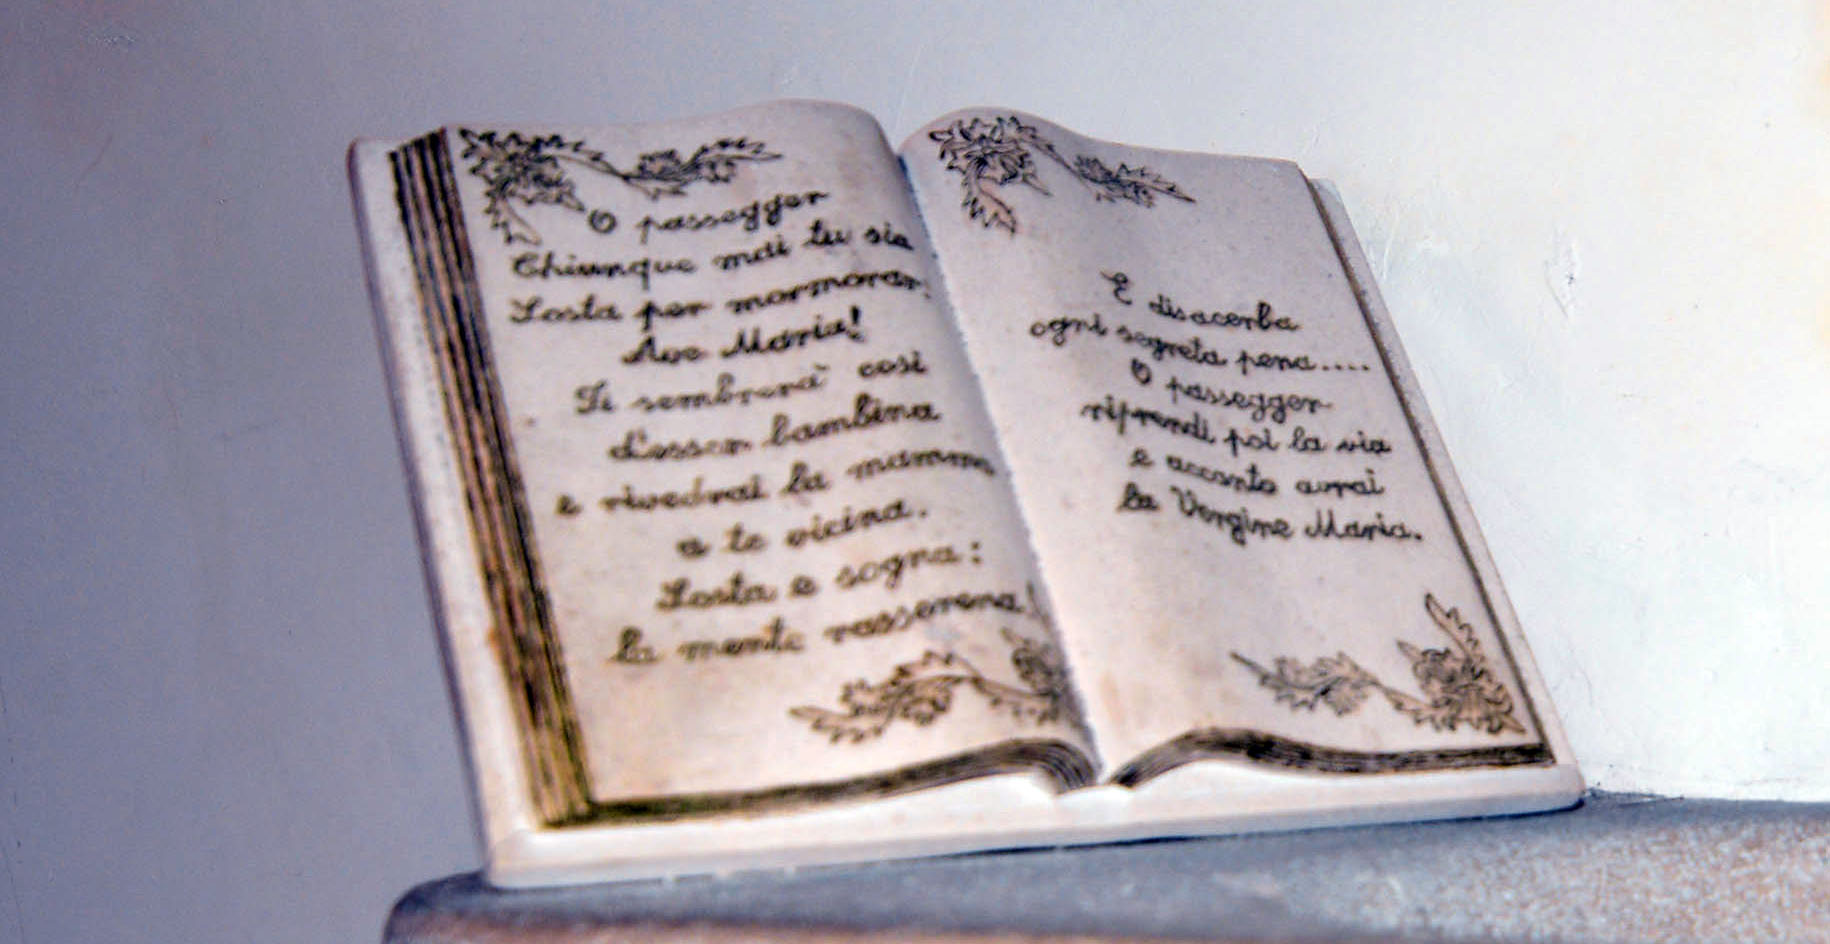 O passegger
Chiunque mai tu sia
Sosta per mormorar:
Ave Maria!
Ti sembrerà così
d'esser bambina
e rivedrai la mamma
a te vicina.
Sosta e sogna:
la mente rasserena!
E disacerba
ogni segreta pena....
O passegger
riprendi poi la via
e accanto avrai
la Vergine Maria.